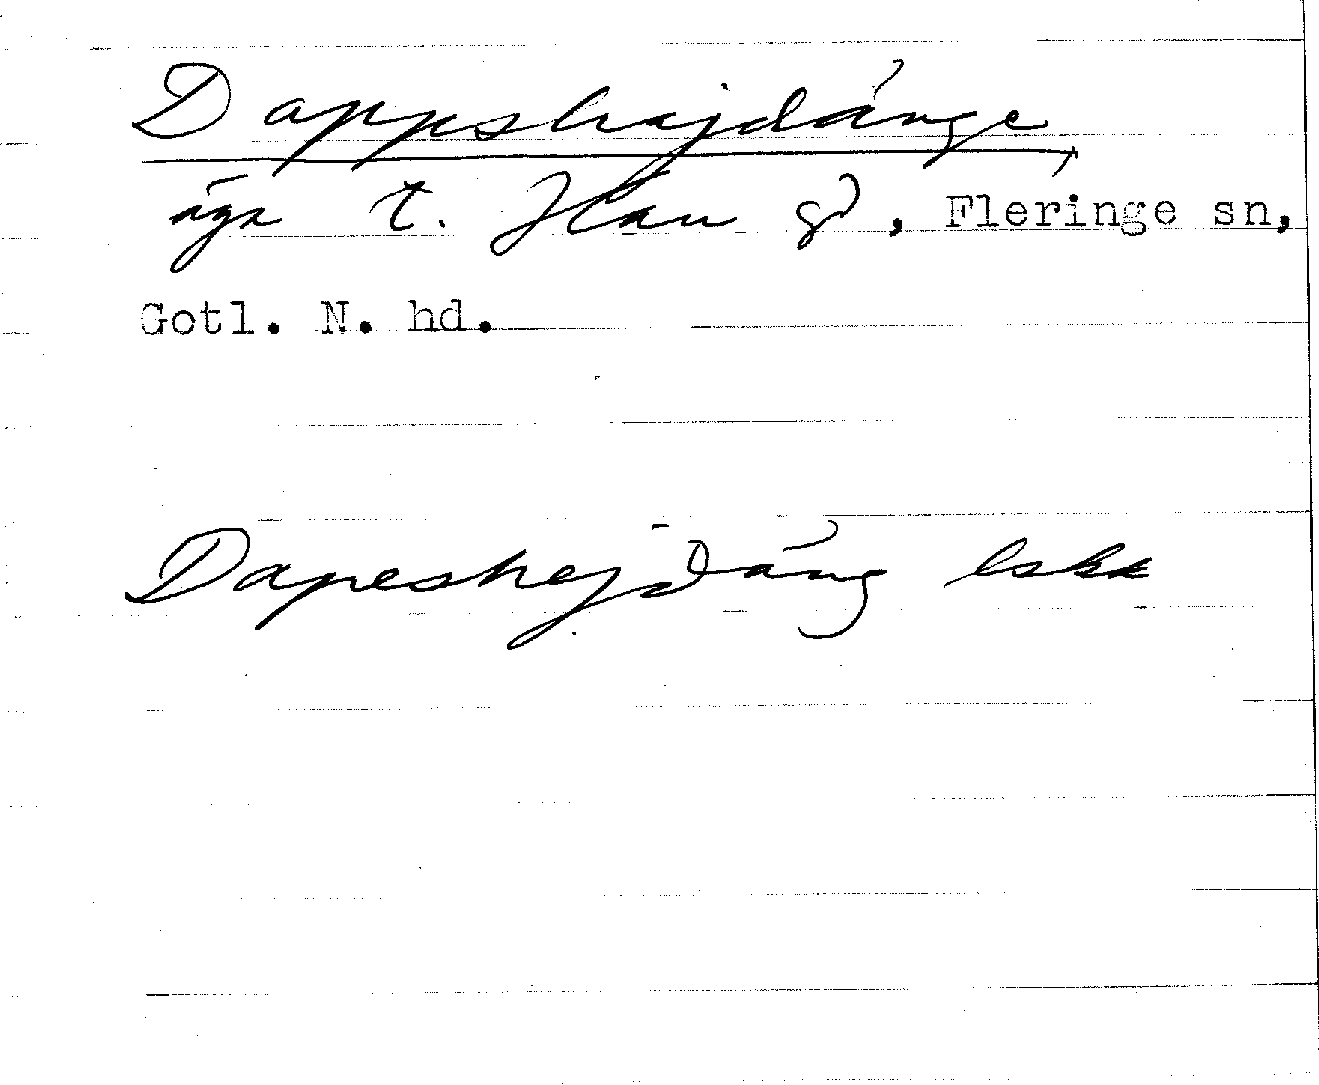 Dappshajdänge,
äga t. Hau gd, Fleringe sn,
Gotl. N. hd.
Dapeshejdäng lskk